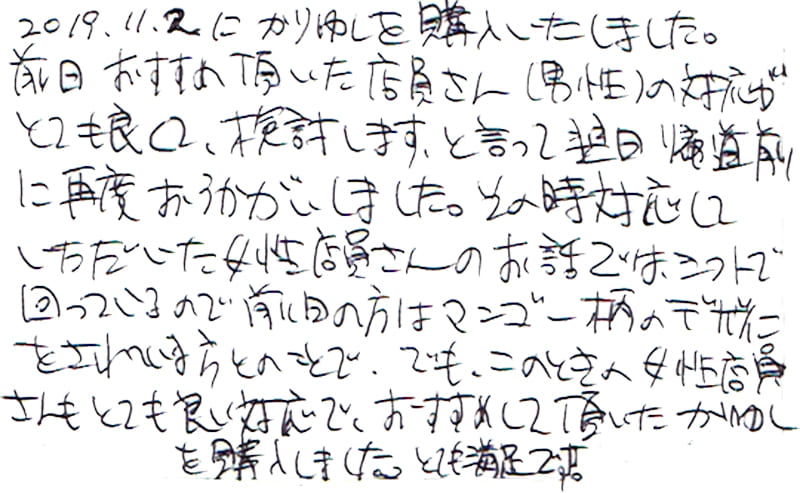 2019.11.2に かりゆしを購入いたしました。
前日 おすすめ頂いた店員さん(男性)の対応が
とても良くて、検討します、と言って翌日 帰道前
に再度おうかがいしました。その時対応して
いただいた女性店員さんのお話では、シフトで
回っているので前日の方はマンゴー柄のデザイン
をされている方とのことで、でも、このときの女性店員
さんもとても良い対応で、おすすめして頂いたかりゆし
を購入しました。とても満足です。